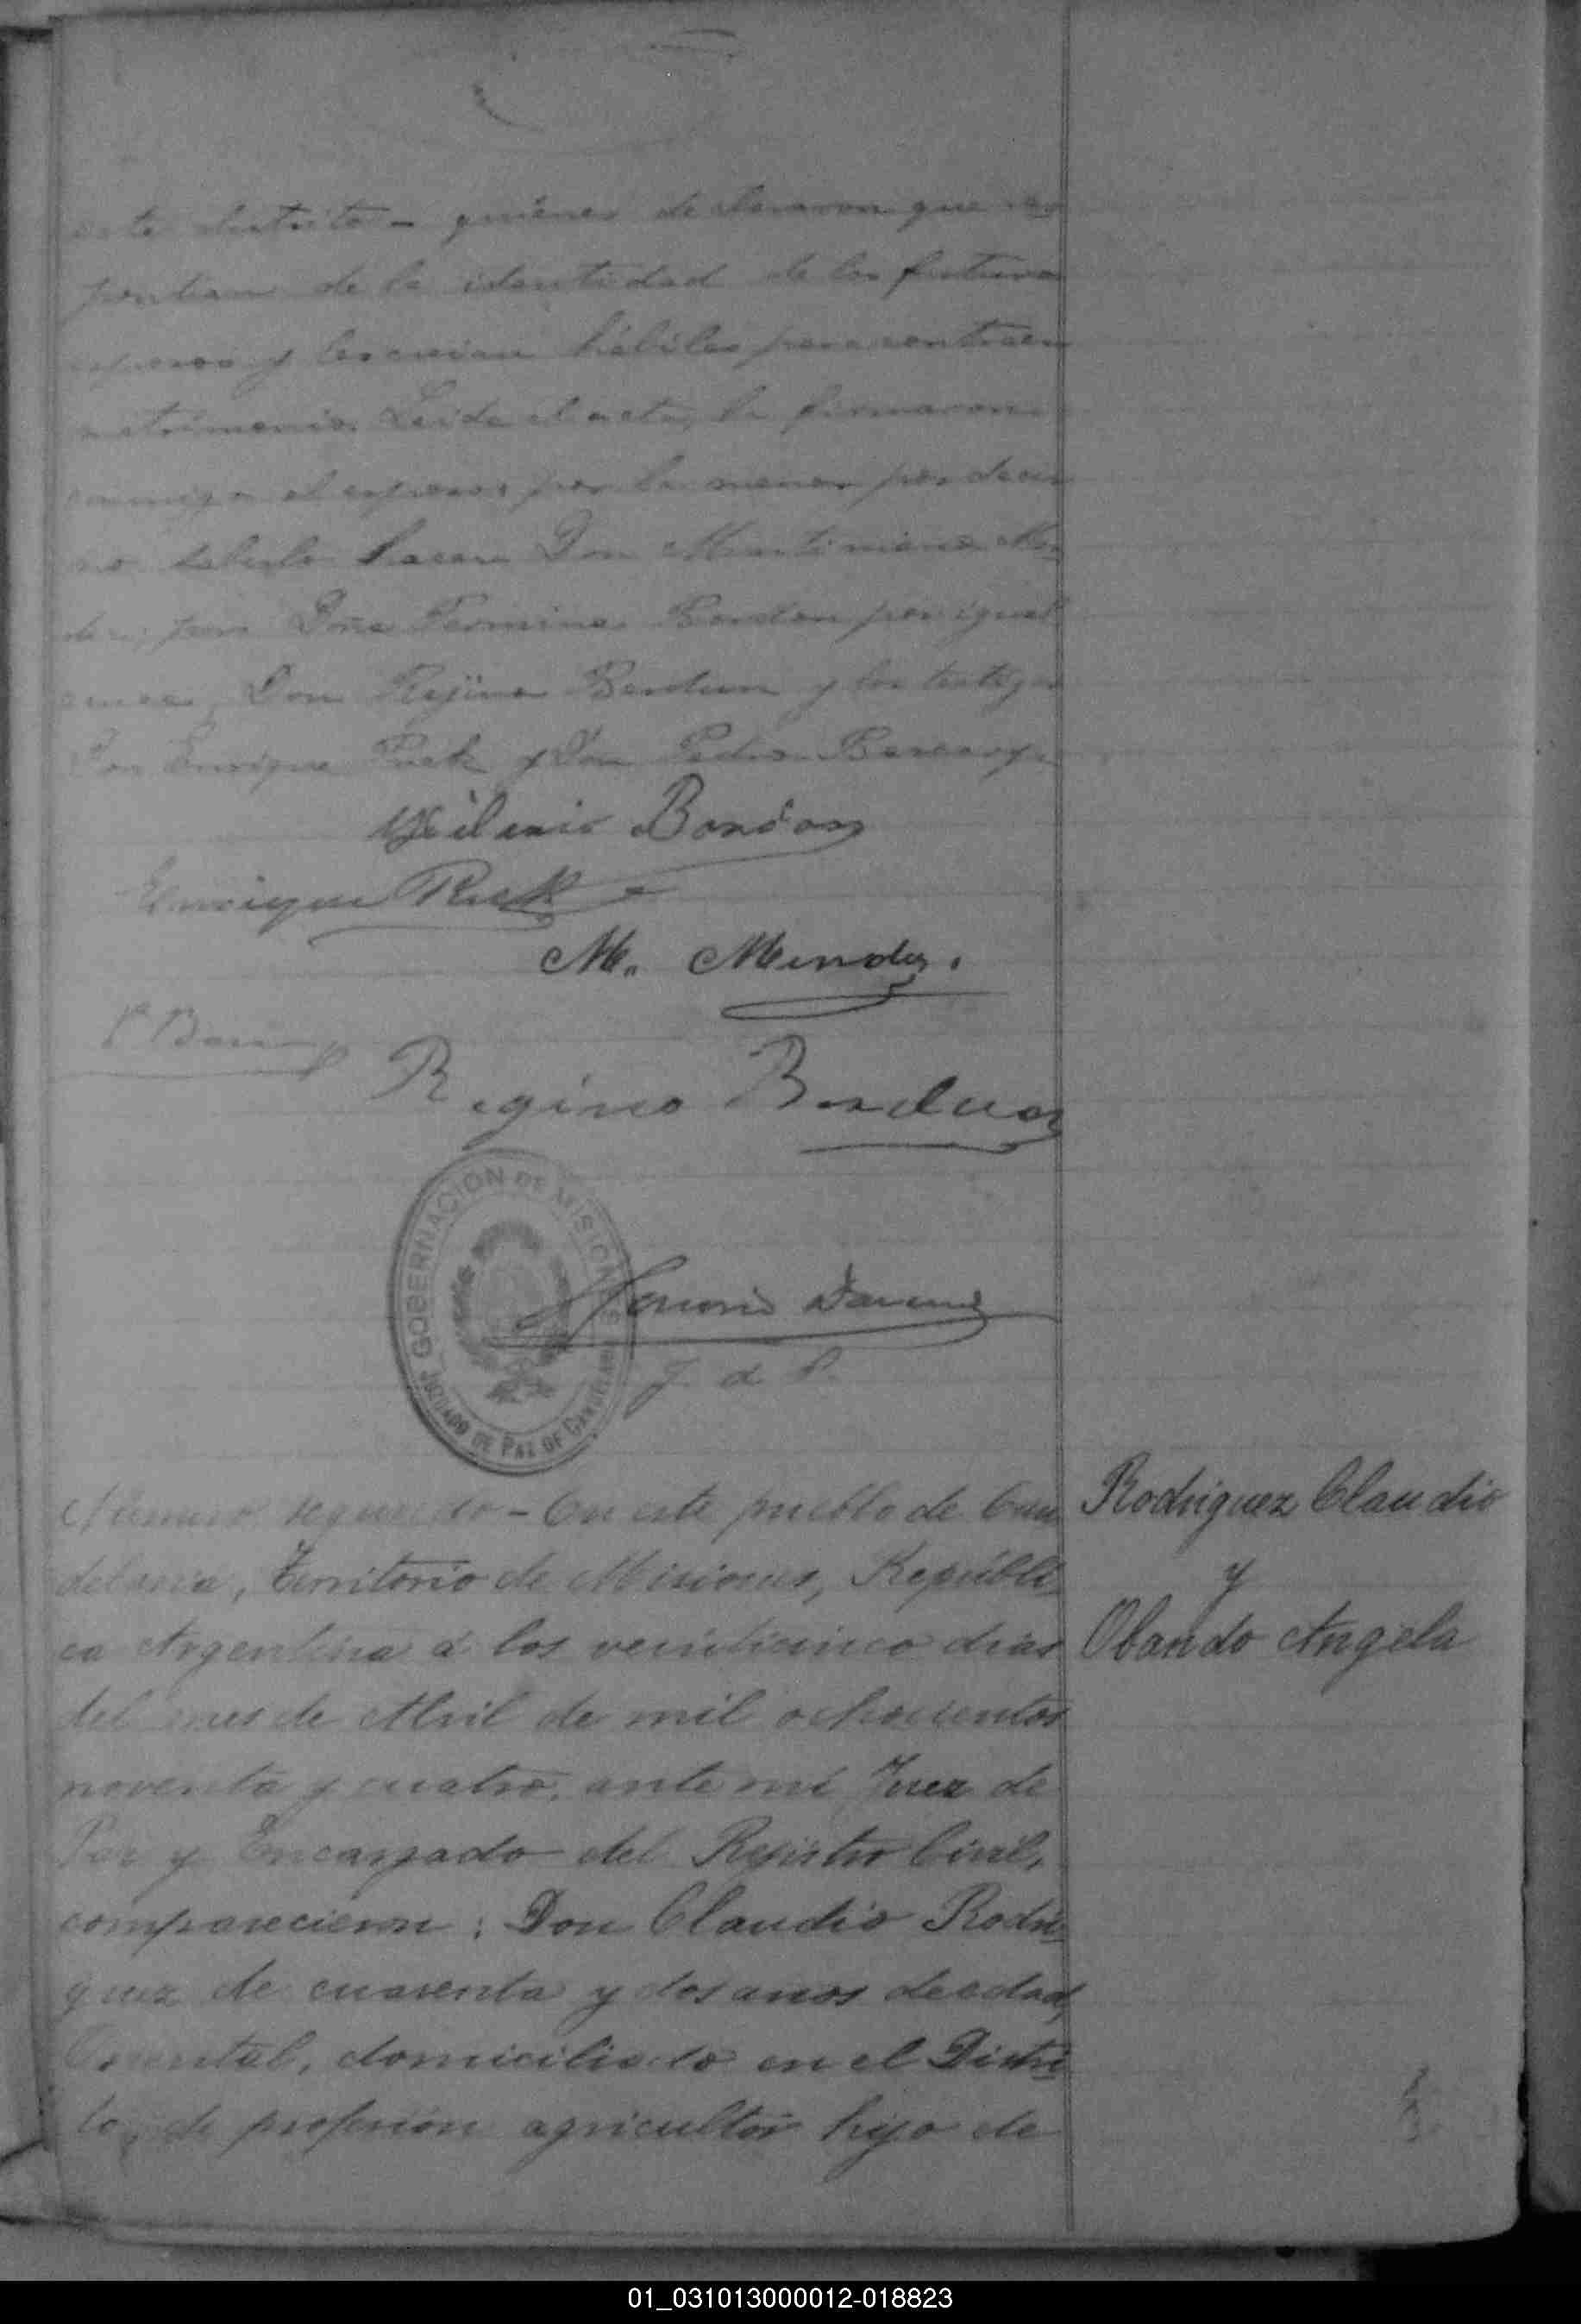 este distrito - quienes declararon que res
pondian de la identidad de los futuros
esposos y los creian hábiles para contraer
matrimonio. Leida el acta, la firmaron
conmigo el esposo, por la menor por decir
no saberlo hacer Don
por Doña Fermina Bordon por igual
causa, Don Rejino Berdun y los testigos
Don Enrique Ruck y Don Pedro
Bordon
Enrique Ruck
M. Mendez.
Regino Berdun
GOBERNACION DE MISIONES
JUZGADO DE PAZ DE CANDELARIA
J. d P.
Número segundo - En este pueblo de Can
delaria, Territorio de Misiones, Repúbli
ca Argentina á los veinticinco dias
del mes de Abril de mil ochocientos
noventa y cuatro, ante mi Juez de
Paz y Encargado del Registro Civil,
comparecieron: Don Claudio Rodri
guez de cuarenta y dos años de edad,
Oriental, domiciliado en el Distri
to, de profesión agricultor hijo de
Rodriguez Claudio
y
Obando Angela
01_031013000012-018823